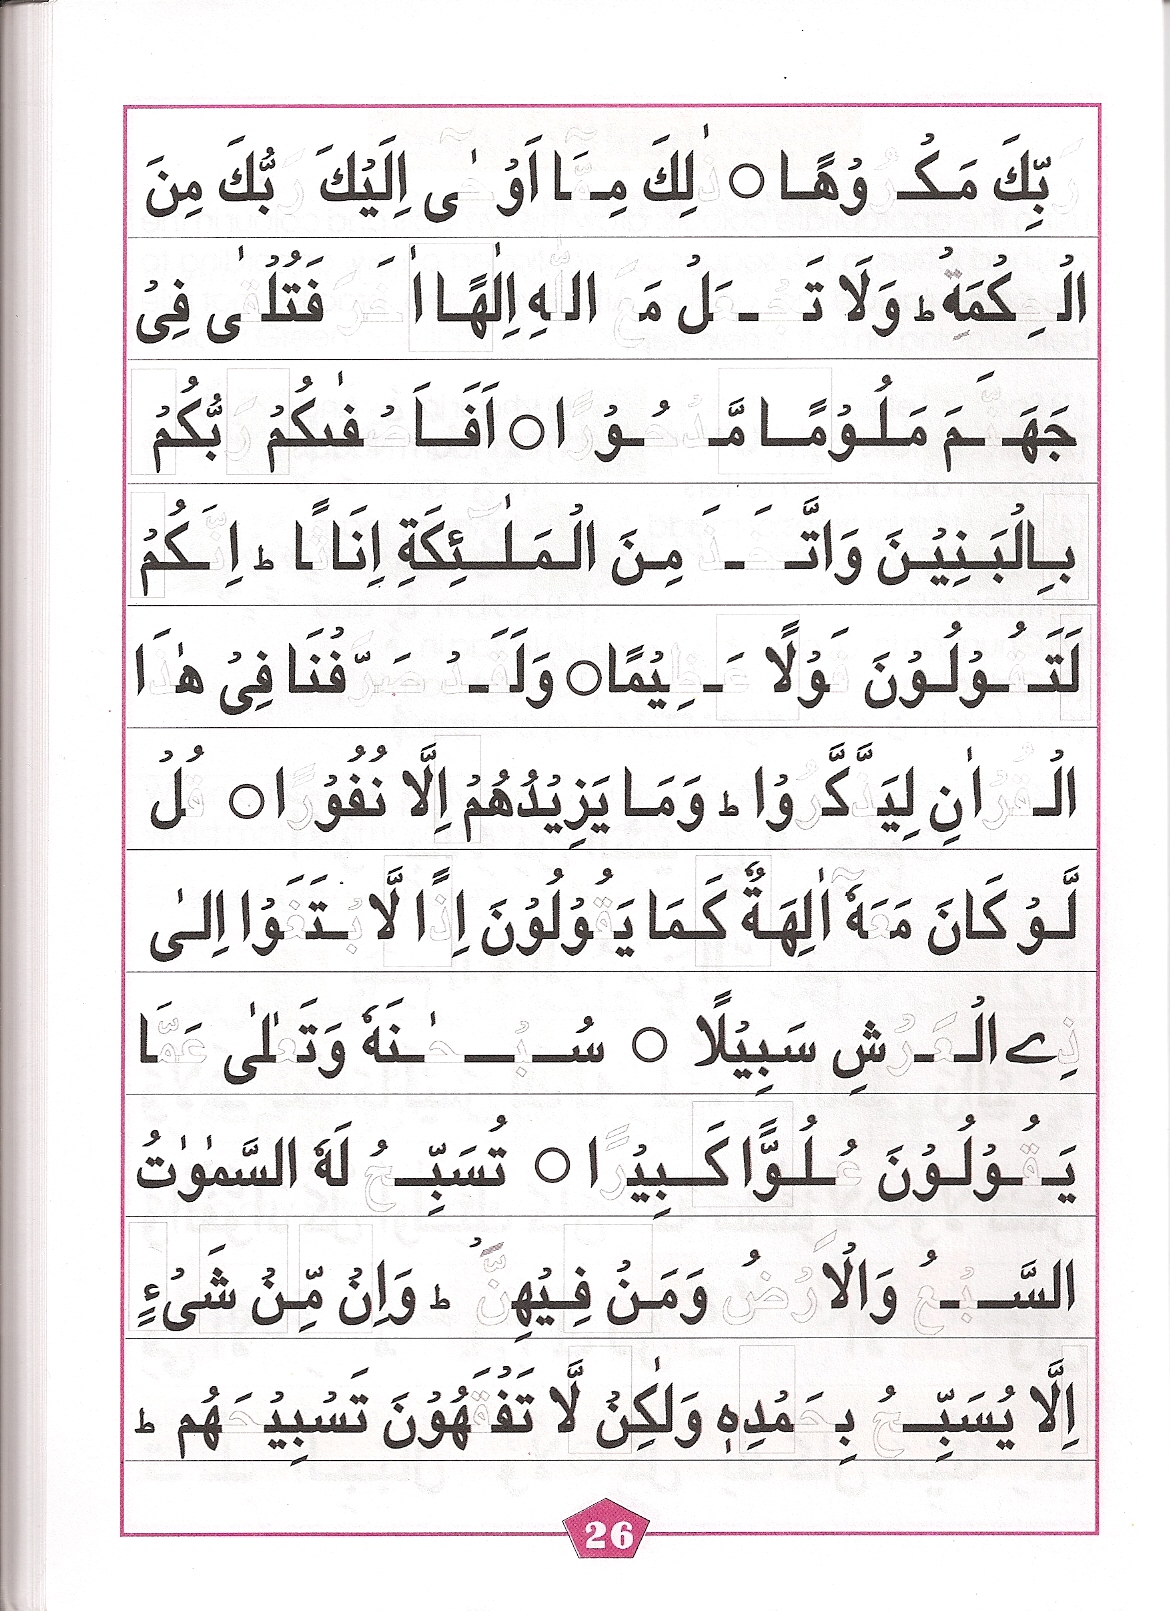 رَبِّكَ مَكْرُوْهًا ○ ذٰلِكَ مِمَّآ اَوْحٰٓى اِلَيْكَ رَبُّكَ مِنَ
الْحِكْمَةِ ؕ وَلَا تَجْعَلْ مَعَ اللّٰهِ اِلٰهًا اٰخَرَ فَتُلْقٰى فِىْ
جَهَنَّمَ مَلُوْمًا مَّدْحُوْرًا ○ اَفَاَصْفٰىكُمْ رَبُّكُمْ
بِالْبَنِيْنَ وَاتَّخَذَ مِنَ الْمَلٰٓئِكَةِ اِنَاثًا ؕ اِنَّكُمْ
لَتَقُوْلُوْنَ قَوْلًا عَظِيْمًا ○ وَلَقَدْ صَرَّفْنَا فِىْ هٰذَا
الْقُرْاٰنِ لِيَذَّكَّرُوْا ؕ وَمَا يَزِيْدُهُمْ اِلَّا نُفُوْرًا ○ قُلْ
لَّوْ كَانَ مَعَهٗٓ اٰلِهَةٌ كَمَا يَقُوْلُوْنَ اِذًا لَّا بْتَغَوْا اِلٰى
ذِے الْعَرْشِ سَبِيْلًا ○ سُبْحٰنَهٗ وَتَعٰلٰى عَمَّا
يَقُوْلُوْنَ عُلُوًّا كَبِيْرًا ○ تُسَبِّحُ لَهُ السَّمٰوٰتُ
السَّبْعُ وَالْاَرْضُ وَمَنْ فِيْهِنَّ ؕ وَاِنْ مِّنْ شَىْءٍ
اِلَّا يُسَبِّحُ بِحَمْدِهٖ وَلٰكِنْ لَّا تَفْقَهُوْنَ تَسْبِيْحَهُم ؕ
26